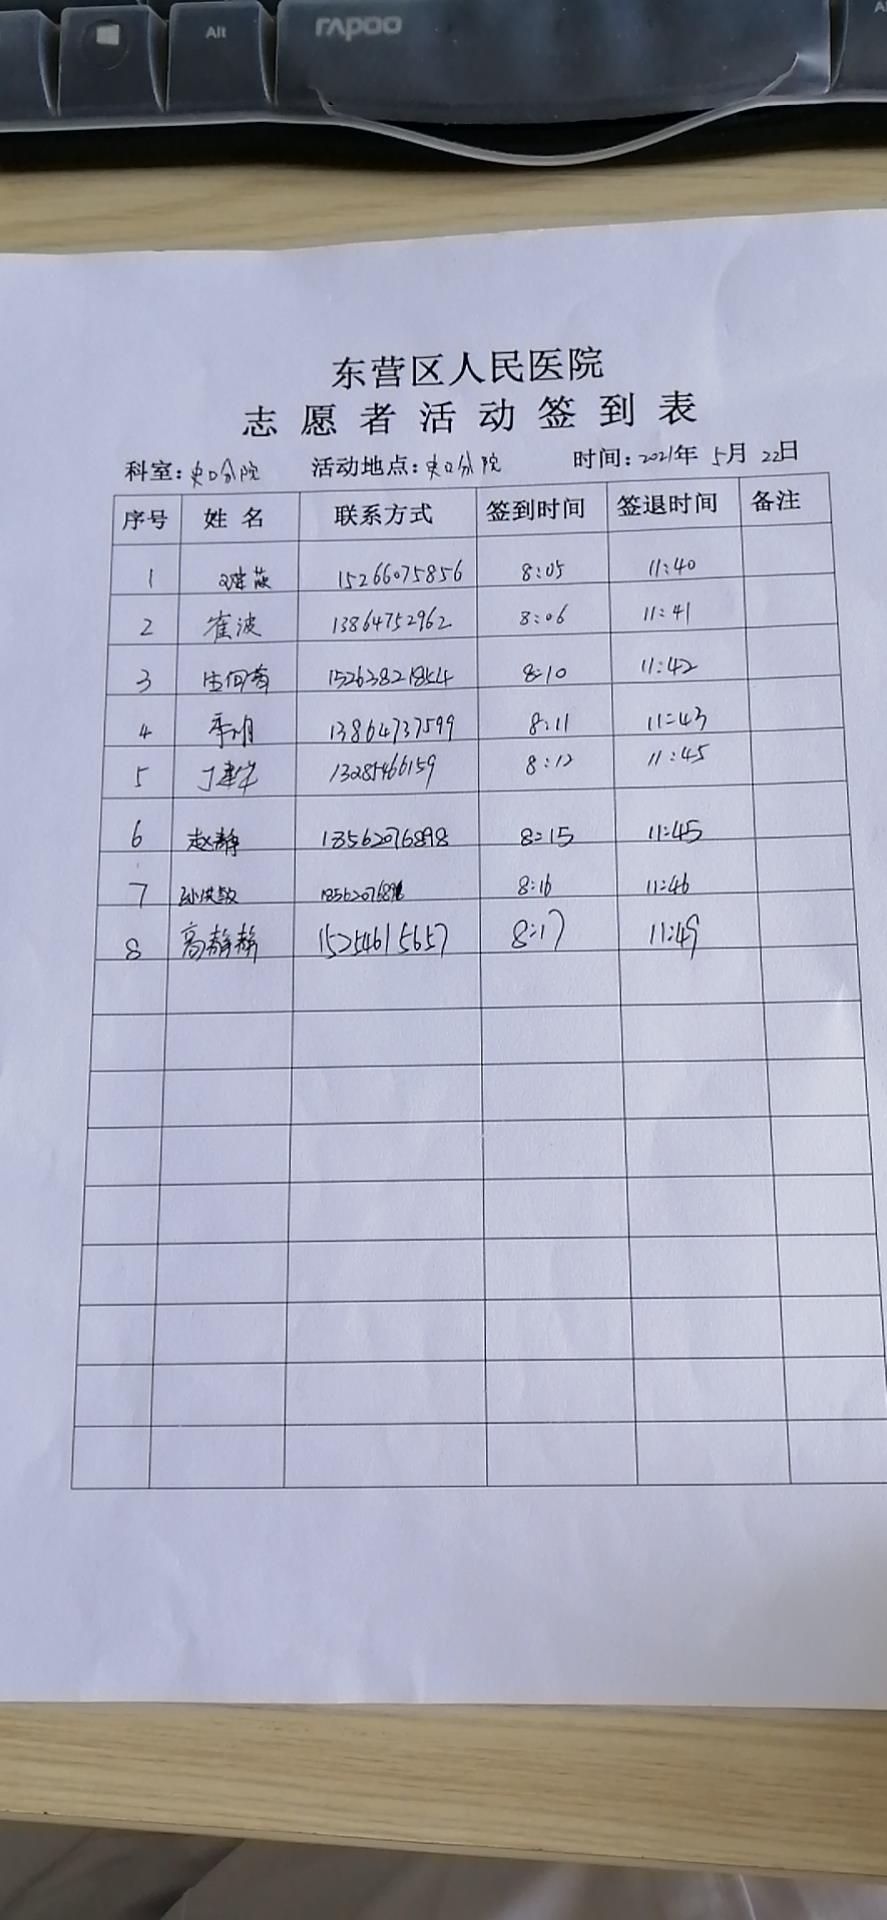 Alt
rapoo
东营区人民医院
志愿者活动签到表
科室:史口分院 活动地点:史口分院 时间:2021年5月22日
序号 姓名 联系方式 签到时间 签退时间 备注
1 15266075856 8:05 11:40
2 崔波 13864752962 8:06 11:41
3 15263821854 8:10 11:42
4 13864737599 8:11 11:43
5 丁建华 13285466159 8:12 11:45
6 赵静 13562076898 8:15 11:45
7 8:16 11:46
8 高静静 15254615657 8:17 11:49